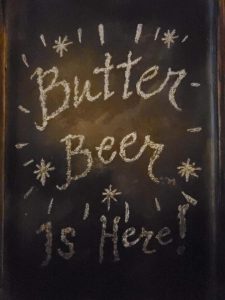 Butter-
Beer
Is Here!